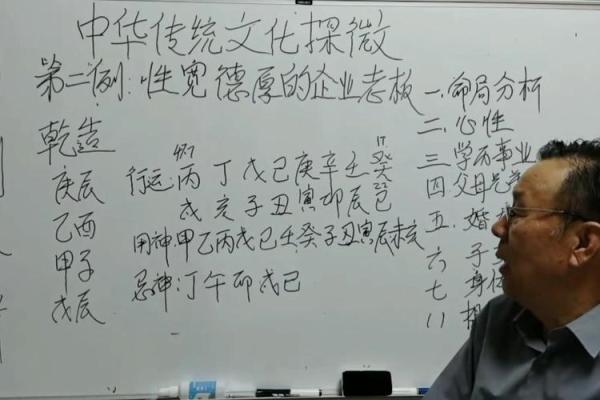 中华传统文化探微
第二例:性宽德厚的企业老板
乾造
庚辰
乙酉
甲子
戊辰
行运:丙丁戊己庚辛壬癸
戌亥子丑寅卯辰巳
用神甲乙丙戊己壬癸子丑寅辰未亥
忌神:丁午卯戌巳
一.命局分析
二.心性
三.学历事业
四.父母
五.婚
六 子
七 身体
八